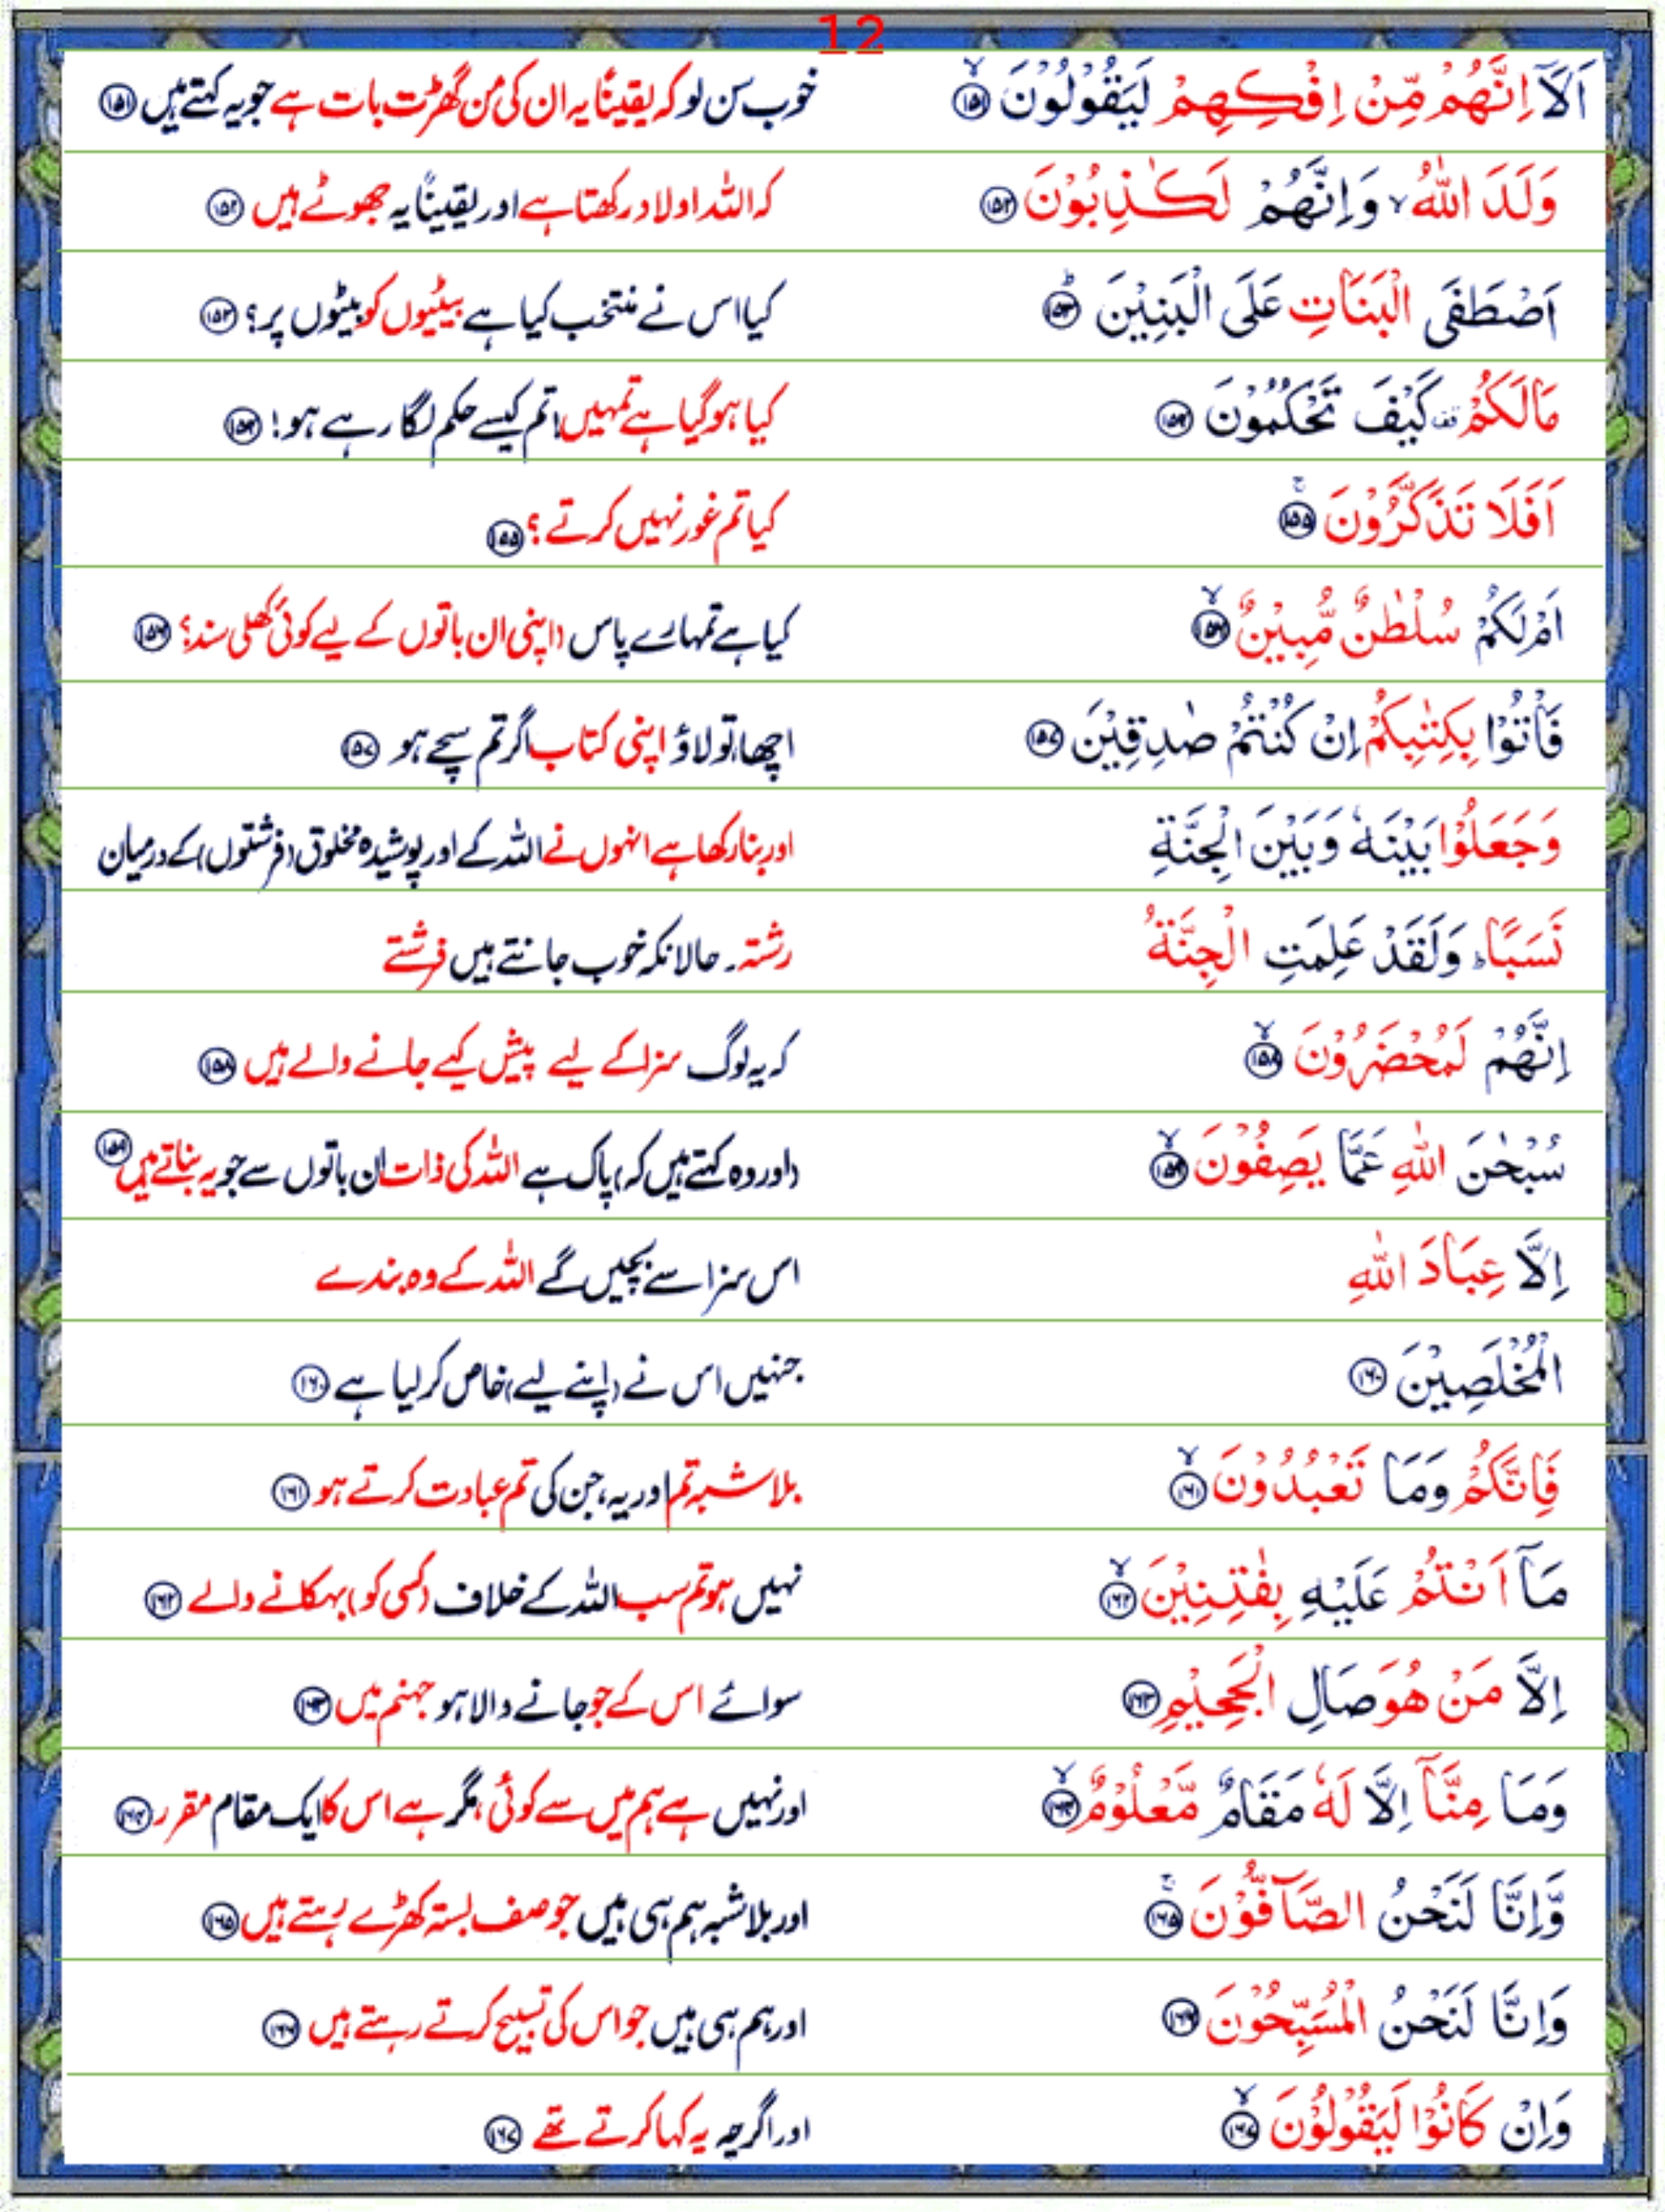 12
اَلَآ اِنَّهُمْ مِّنْ اِفْكِهِمْ لَيَقُوْلُوْنَ ۙ ﴿۱۵۱﴾ خوب سن لو کہ یقینًا یہ ان کی من گھڑت بات ہے جو یہ کہتے ہیں ﴿۱۵۱﴾
وَلَدَ اللّٰهُ ۙ وَاِنَّهُمْ لَكٰذِبُوْنَ ﴿۱۵۲﴾ کہ اللہ اولاد رکھتا ہے اور یقینًا یہ جھوٹے ہیں ﴿۱۵۲﴾
اَصْطَفَى الْبَنَاتِ عَلَى الْبَنِيْنَ ؕ ﴿۱۵۳﴾ کیا اس نے منتخب کیا ہے بیٹیوں کو بیٹوں پر؟ ﴿۱۵۳﴾
مَا لَكُمْ ۫ كَيْفَ تَحْكُمُوْنَ ﴿۱۵۴﴾ کیا ہو گیا ہے تمہیں، تم کیسے حکم لگا رہے ہو! ﴿۱۵۴﴾
اَفَلَا تَذَكَّرُوْنَ ۚ ﴿۱۵۵﴾ کیا تم غور نہیں کرتے ؟ ﴿۱۵۵﴾
اَمْ لَكُمْ سُلْطٰنٌ مُّبِيْنٌ ۙ ﴿۱۵۶﴾ کیا ہے تمہارے پاس (اپنی ان باتوں کے لیے کوئی کھلی سند؟ ﴿۱۵۶﴾
فَاْتُوْا بِكِتٰبِكُمْ اِنْ كُنْتُمْ صٰدِقِيْنَ ﴿۱۵۷﴾ اچھا، تو لاؤ اپنی کتاب اگر تم سچے ہو ﴿۱۵۷﴾
وَجَعَلُوْا بَيْنَهٗ وَبَيْنَ الْجِنَّةِ اور بنا رکھا ہے انہوں نے اللہ کے اور پوشیدہ مخلوق (فرشتوں) کے درمیان
نَسَبًا ؕ وَلَقَدْ عَلِمَتِ الْجِنَّةُ رشتہ۔ حالانکہ خوب جانتے ہیں فرشتے
اِنَّهُمْ لَمُحْضَرُوْنَ ۙ ﴿۱۵۸﴾ کہ یہ لوگ سزا کے لیے پیش کیے جانے والے ہیں ﴿۱۵۸﴾
سُبْحٰنَ اللّٰهِ عَمَّا يَصِفُوْنَ ۙ ﴿۱۵۹﴾ (اور وہ کہتے ہیں کہ) پاک ہے اللہ کی ذات ان باتوں سے جو یہ بناتے ہیں ﴿۱۵۹﴾
اِلَّا عِبَادَ اللّٰهِ اس سزا سے بچیں گے اللہ کے وہ بندے
الْمُخْلَصِيْنَ ﴿۱۶۰﴾ جنہیں اس نے (اپنے لیے) خاص کر لیا ہے ﴿۱۶۰﴾
فَاِنَّكُمْ وَمَا تَعْبُدُوْنَ ۙ ﴿۱۶۱﴾ بلا شبہ تم اور یہ، جن کی تم عبادت کرتے ہو ﴿۱۶۱﴾
مَآ اَنْتُمْ عَلَيْهِ بِفٰتِنِيْنَ ۙ ﴿۱۶۲﴾ نہیں ہو تم سب اللہ کے خلاف (کسی کو) بہکانے والے ﴿۱۶۲﴾
اِلَّا مَنْ هُوَ صَالِ الْجَحِيْمِ ﴿۱۶۳﴾ سوائے اس کے جو جانے والا ہو جہنم میں ﴿۱۶۳﴾
وَمَا مِنَّآ اِلَّا لَهٗ مَقَامٌ مَّعْلُوْمٌ ۙ ﴿۱۶۴﴾ اور نہیں ہے ہم میں سے کوئی، مگر ہے اس کا ایک مقام مقرر ﴿۱۶۴﴾
وَّاِنَّا لَنَحْنُ الصَّآفُّوْنَ ۚ ﴿۱۶۵﴾ اور بلا شبہ ہم ہی ہیں جو صف بستہ کھڑے رہتے ہیں ﴿۱۶۵﴾
وَاِنَّا لَنَحْنُ الْمُسَبِّحُوْنَ ﴿۱۶۶﴾ اور ہم ہی ہیں جو اس کی تسبیح کرتے رہتے ہیں ﴿۱۶۶﴾
وَاِنْ كَانُوْا لَيَقُوْلُوْنَ ۙ ﴿۱۶۷﴾ اور اگرچہ یہ کہا کرتے تھے ﴿۱۶۷﴾